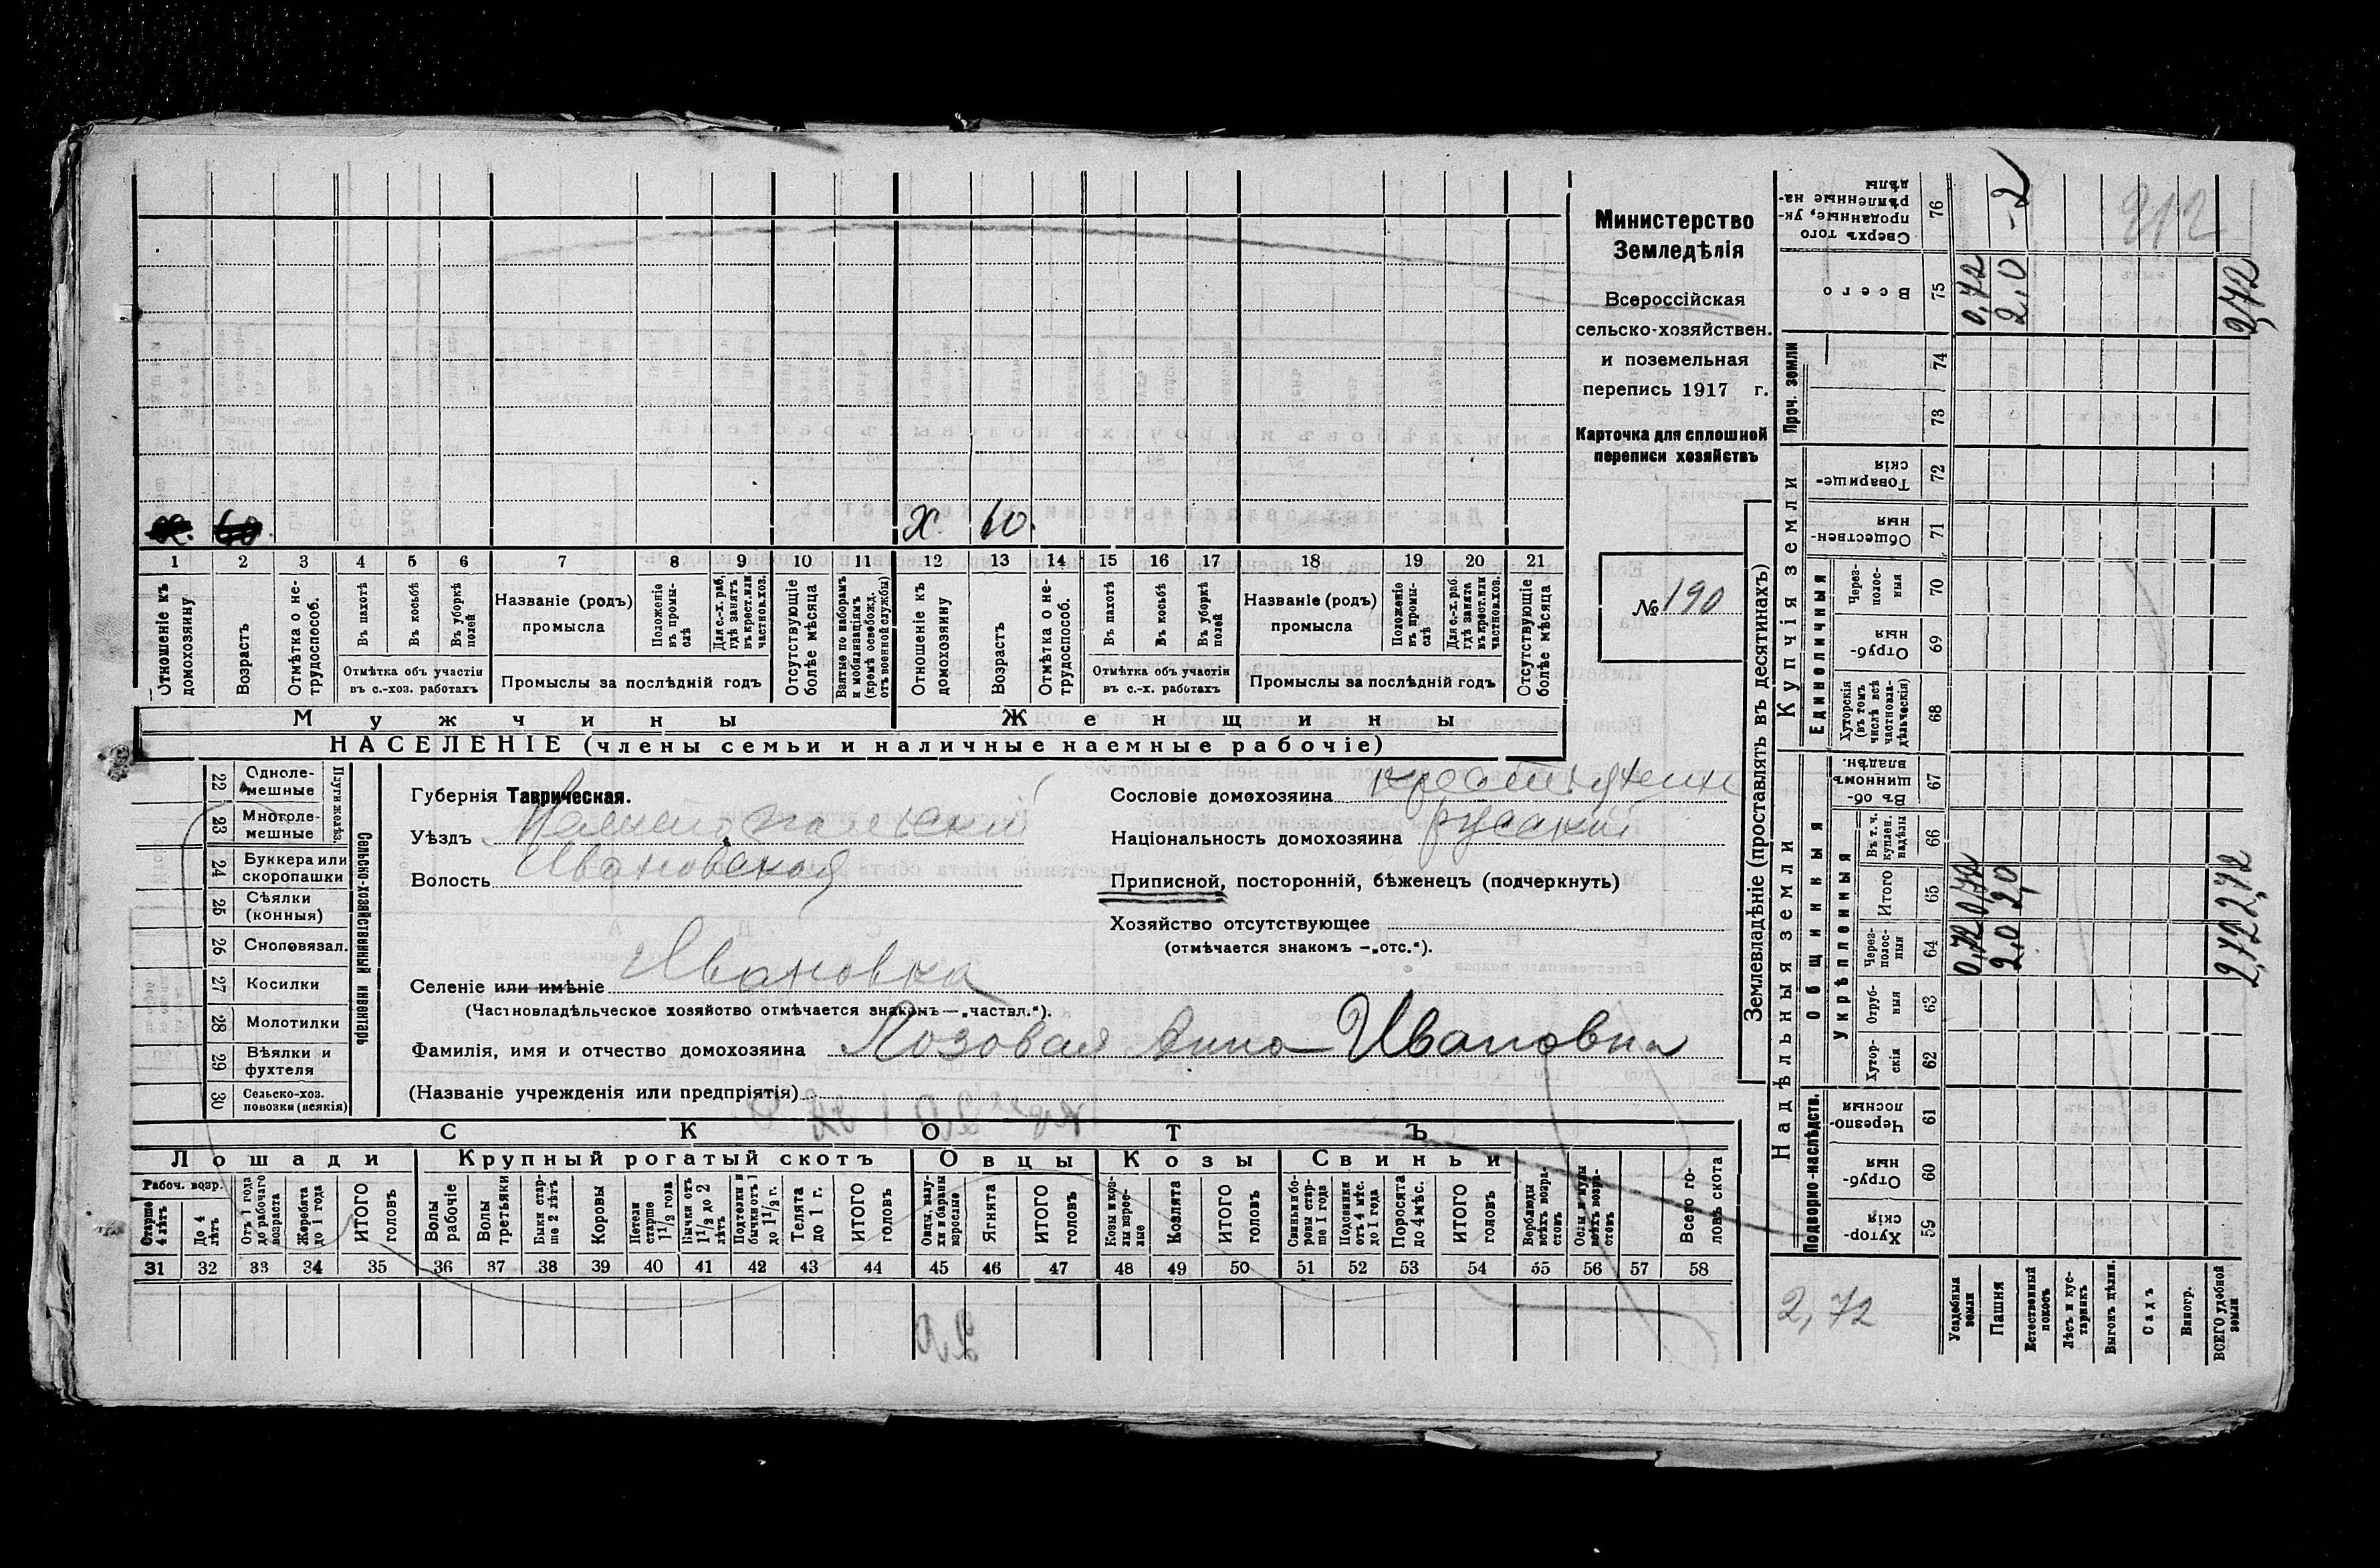 Министерство
Земледѣлія
Всероссійская
сельско-хозяйствен.
и поземельная
перепись 1917 г.
Карточка для сплошной
переписи хозяйствъ
№ 190
х. 60.
х. 60.
1 2 3 4 5 6 7 8 9 10 11 12 13 14 15 16 17 18 19 20 21
Отношеніе къ домохозяину
Возрастъ
Отмѣтка о не-трудоспособ.
Въ пахотѣ
Въ косьбѣ
Въ уборкѣ полей
Отмѣтка объ участіи
въ с.-хоз. работахъ
Названіе (родъ)
промысла
Положеніе въ промы-слѣ
Для с.-х. раб. гдѣ занятъ въ крест. или частнов. хоз.
Промыслы за послѣдній годъ
Отсутствующіе болѣе мѣсяца
Взятые по наборамъ и мобилизаціямъ (кромѣ освобожд. отъ военной службы)
Отношеніе къ домохозяину
Возрастъ
Отмѣтка о не-трудоспособ.
Въ пахотѣ
Въ косьбѣ
Въ уборкѣ полей
Отмѣтка объ участіи
въ с.-х. работахъ
Названіе (родъ)
промысла
Положеніе въ промы-слѣ
Для с.-х. раб. гдѣ занята въ крест. или частнов. хоз.
Промыслы за послѣдній годъ
Отсутствующіе болѣе мѣсяца
Мужчины Женщины
НАСЕЛЕНІЕ (члены семьи и наличные наемные рабочіе)
Сельско-хозяйственный инвентарь
Плуги желѣз.
22 Одноле-мешные
23 Многоле-мешные
24 Буккера или скоропашки
25 Сѣялки (конныя)
26 Сноповязал.
27 Косилки
28 Молотилки
29 Вѣялки и фухтеля
30 Сельско-хоз. повозки (всякія)
Губернія Таврическая.
Уѣздъ Мелитопольскій
Волость Ивановская
Селеніе или имѣніе Ивановка
(Частновладѣльческое хозяйство отмѣчается знакомъ —„частвл.“).
Фамилія, имя и отчество домохозяина Лозовая Анна Ивановна
(Названіе учрежденія или предпріятія)
Сословіе домохозяина крестьянин
Національность домохозяина русскій
Приписной, посторонній, бѣженецъ (подчеркнуть)
Хозяйство отсутствующее
(отмѣчается знакомъ —„отс.“).
СКОТЪ
Лошади Крупный рогатый скотъ Овцы Козы Свиньи
Рабоч. возр.
Старше 4 лѣтъ
До 4 лѣтъ
Отъ 1 года до рабочаго возраста
Жеребята до 1 года
ИТОГО головъ
Волы рабочіе
Волы третьяки
Быки стар-ше 2 лѣтъ
Коровы
Нетели старше 1½ года
Бычки отъ 1½ до 2 лѣтъ
Подтелки и бычки отъ 1 до 1½ г.
Телята до 1 г.
ИТОГО головъ
Овцы, валу-хи и бараны взрослые
Ягнята
ИТОГО головъ
Козы и коз-лы взрос-лые
Козлята
ИТОГО головъ
Свиньи и бо-ровы стар-ше 1 года
Подсвинки отъ 4 мѣс. до 1 года
Поросята до 4 мѣс.
ИТОГО головъ
Верблюды всѣхъ возра-стовъ
Ослы и мулы всѣхъ возра-стовъ
Всего го-ловъ скота
31 32 33 34 35 36 37 38 39 40 41 42 43 44 45 46 47 48 49 50 51 52 53 54 55 56 57 58
Землевладѣніе (проставлять въ десятинахъ)
Надѣльныя земли
Купчія земли
Проч. земли
Подворно-наслѣдств.
Общинныя
Укрѣпленныя
Единоличныя
59 Хутор-скія
60 Отруб-ныя
61 Черезпо-лосныя
62 Хутор-скія
63 Отруб-ныя
64 Через-полос-ныя
65 Итого
66 Въ т. ч. куплен. надѣлы
67 Въ об-щинномъ владѣн.
68 Хуторскія (въ томъ числѣ всѣ частновла-дѣльческія)
69 Отруб-ныя
70 Через-полос-ныя
71 Обществен-ныя
72 Товарище-скія
73
74
75 Всего
76 Сверхъ того проданные, ук-рѣпленные на-дѣлы
Усадебныя земли 0,72 0,72 0,72
Пашня 2,0 2,0 2,0 -2
Естественный покосъ
Лѣсъ и кус-тарникъ
Выгонъ цѣлин.
Садъ
Виногр.
ВСЕГО удобной земли 2,72 2,72 2,72
2,72
212